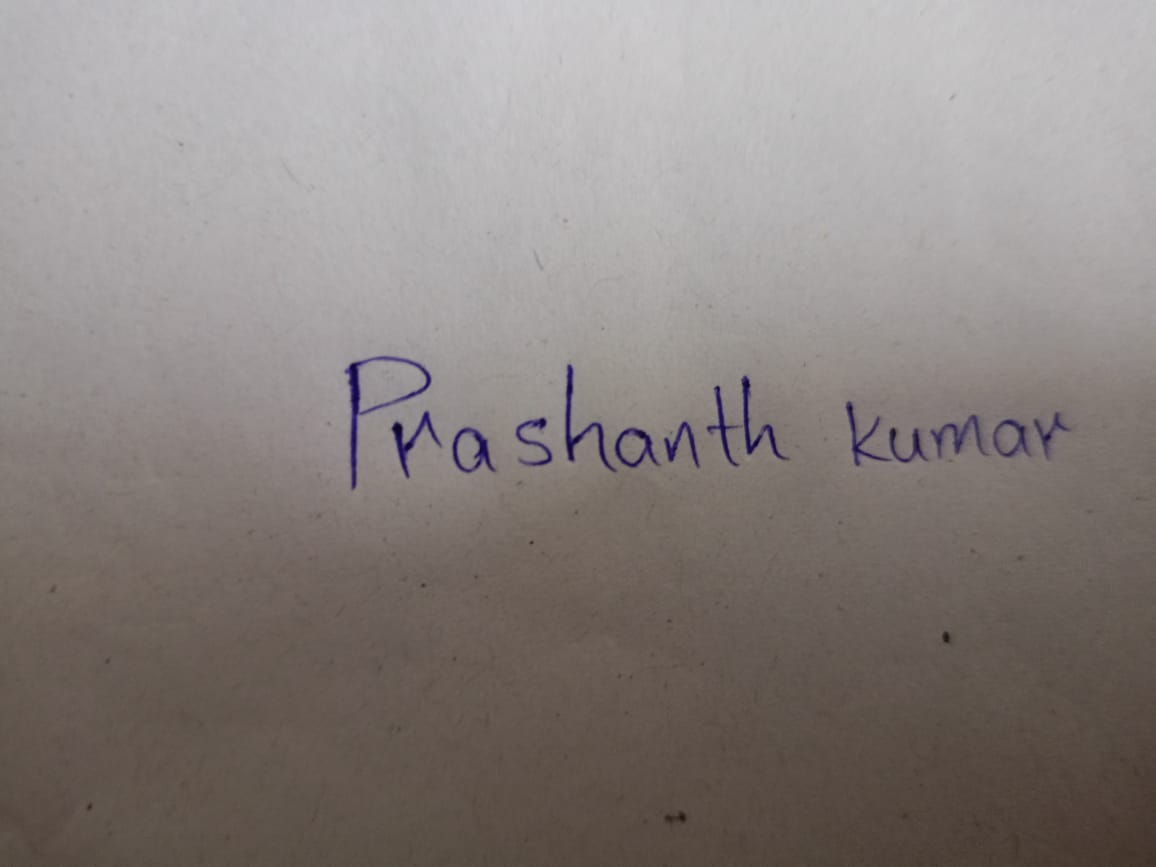 Prashanth kumar